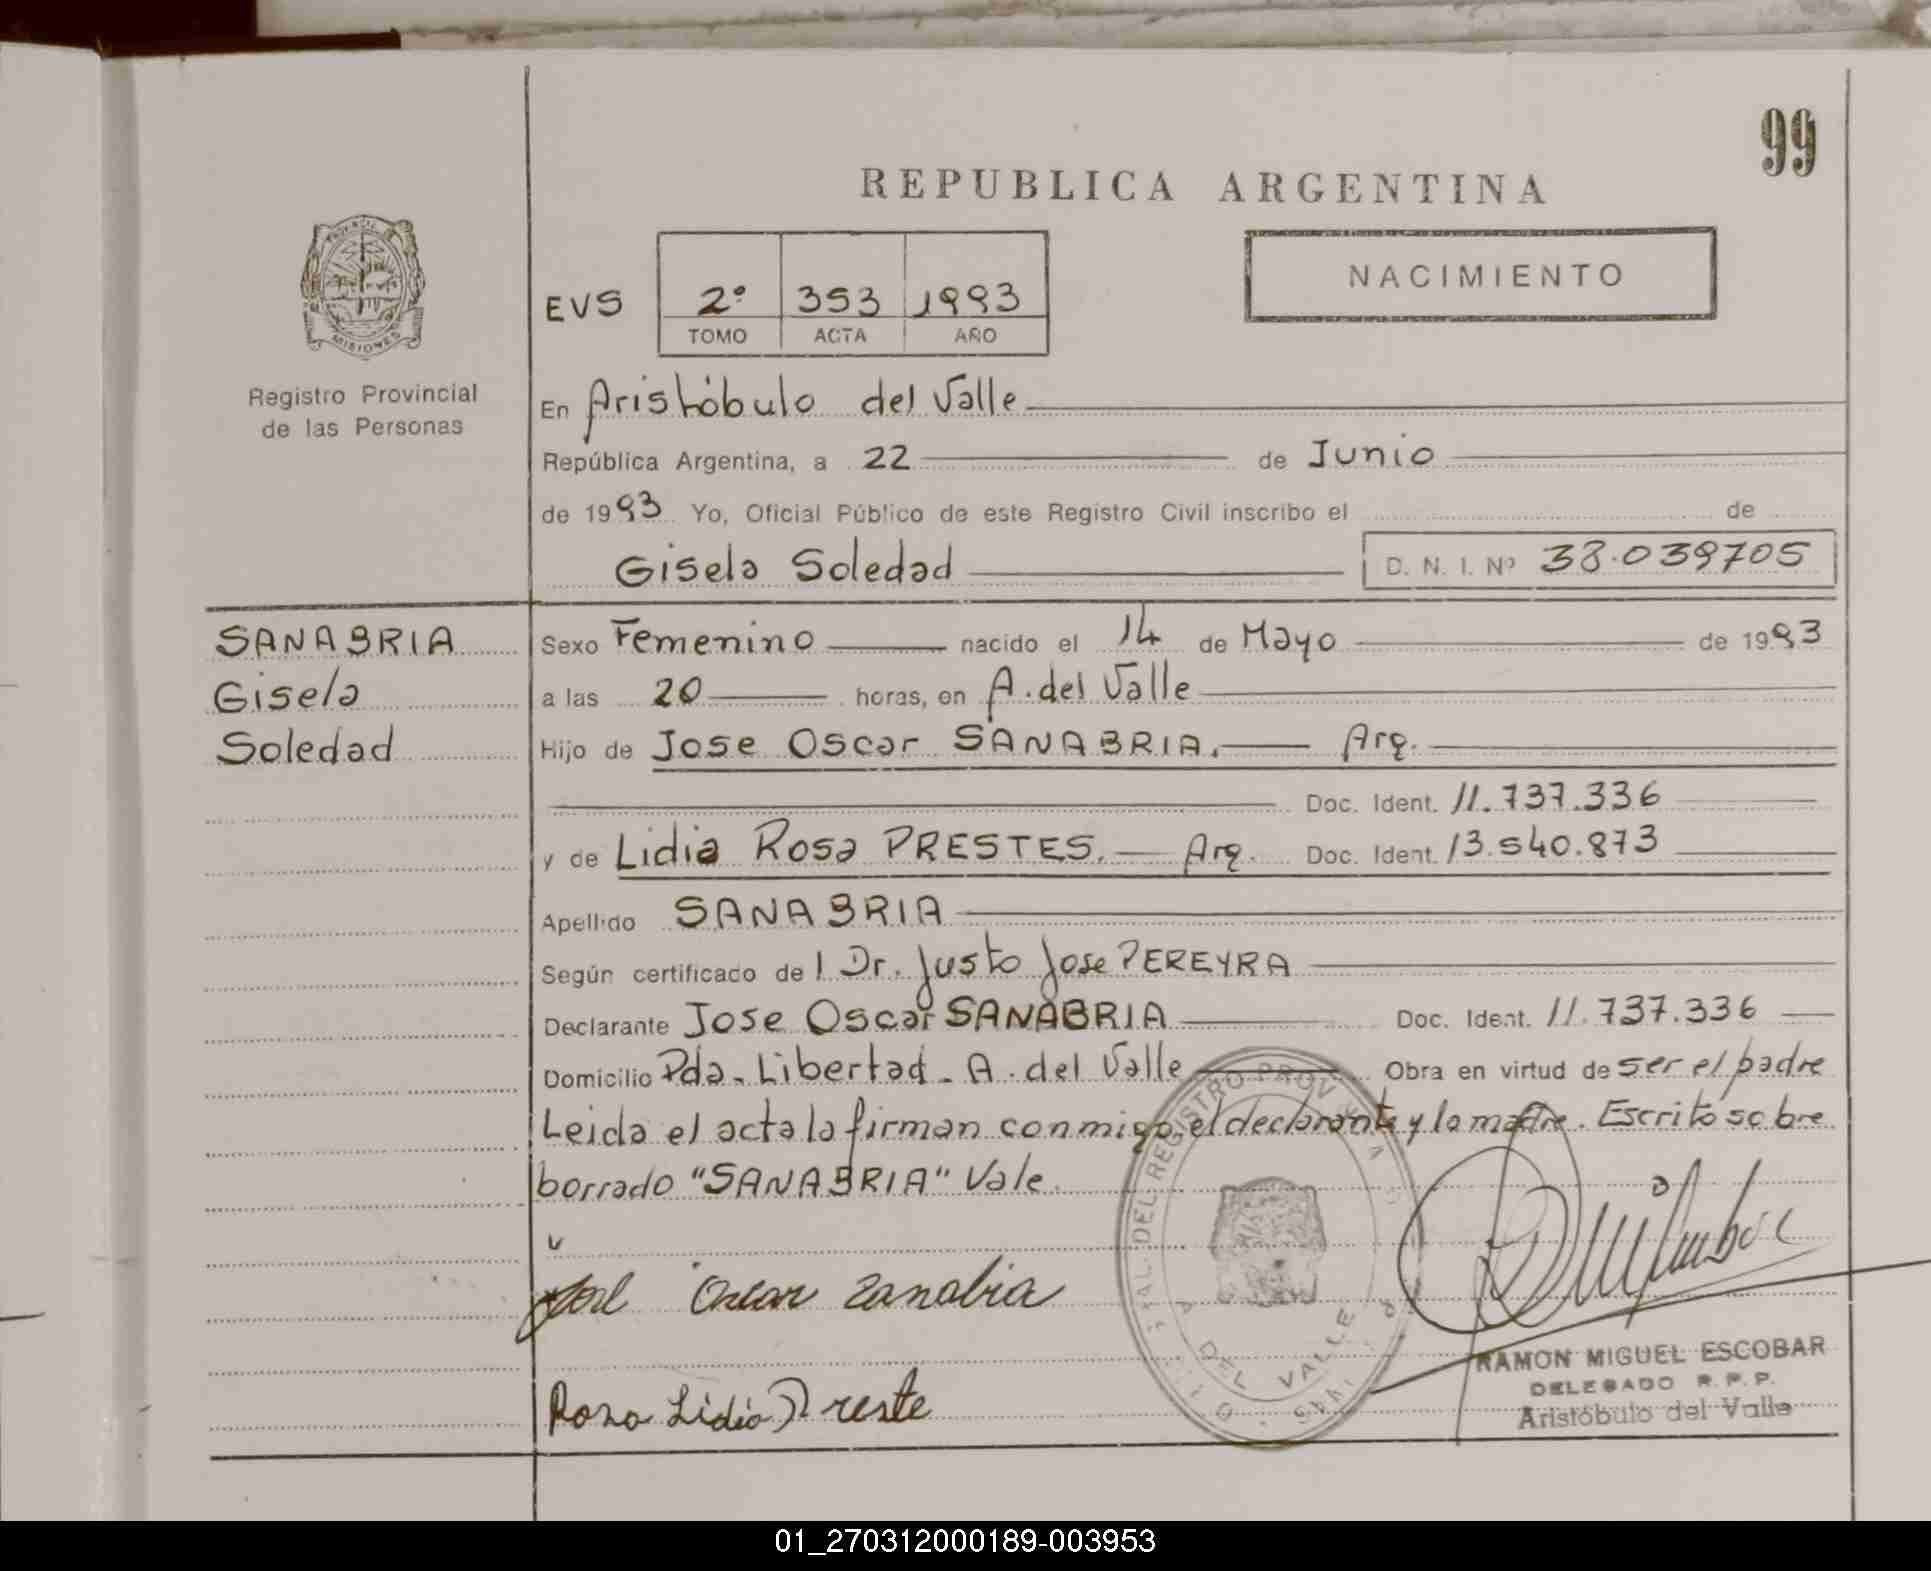 99
REPUBLICA ARGENTINA
PROVINCIA DE
MISIONES
EVS 2° 353 1993
TOMO ACTA AÑO
NACIMIENTO
Registro Provincial
de las Personas
En Aristóbulo del Valle
República Argentina, a 22 de Junio
de 1993 Yo, Oficial Público de este Registro Civil inscribo el de
Gisela Soledad D. N. I. Nº 38.039705
SANABRIA Sexo Femenino nacido el 14 de Mayo de 1993
Gisela a las 20 horas, en A. del Valle
Soledad Hijo de Jose Oscar SANABRIA. Arg.
Doc. Ident. 11.737.336
y de Lidia Rosa PRESTES. Arg. Doc. Ident. 13.540.873
Apellido SANABRIA
Según certificado de l Dr. Justo Jose PEREYRA
Declarante Jose Oscar SANABRIA Doc. Ident. 11.737.336
Domicilio Pda. Libertad - A. del Valle Obra en virtud de ser el padre
Leida el acta la firman conmigo, el declarante y la madre. Escrito sobre
borrado "SANABRIA" Vale.
José Oscar Zanabia
Rosa Lidia Preste
DEL REGISTRO PROV
DEL VALLE
RAMON MIGUEL ESCOBAR
DELEGADO R. P. P.
Aristóbulo del Valle
01_270312000189-003953